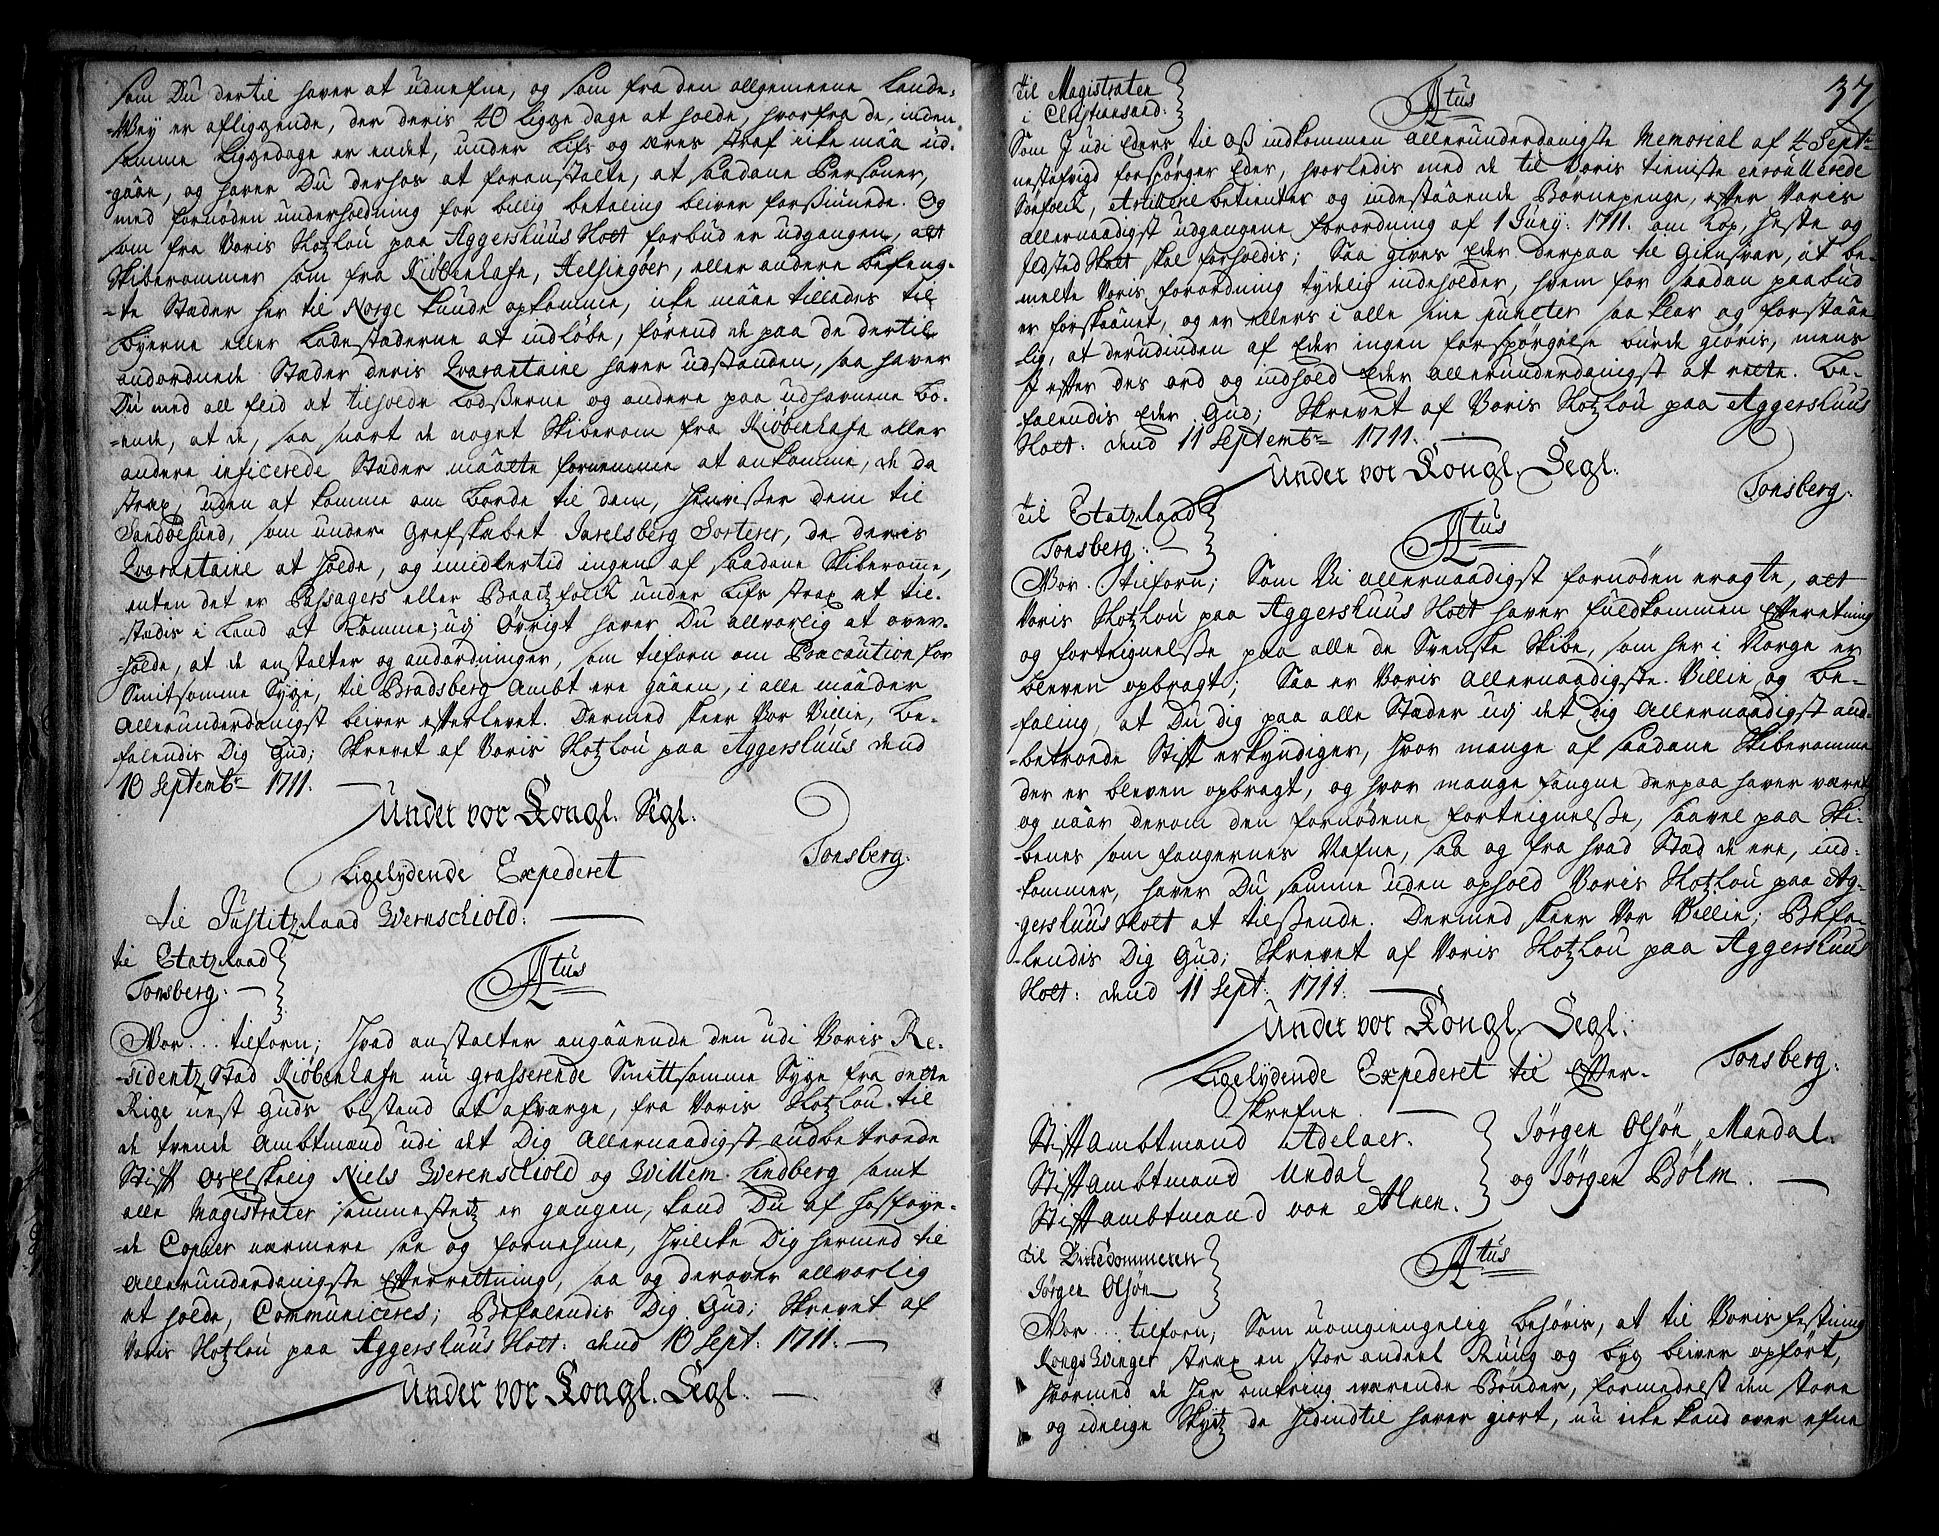 som Du dertil haver at udnefne, og som fra den allgemeene Lande-
-Vey er afliggende, der deris 40 ligge dage at holde, hvorfra de, inden
samme liggedage er endet, under Lifs og æres straf icke maa ud-
-gaae, og haver Du derhos at foranstalte, at saadane Personer,
med fornøden underholdning for billig betaling bliver forsiunede. Og
som fra Voris Slotzlou paa Aggershuus Slott forbud er udgangen, att
Skiberommer som fra Kiøbenhafn, Helsingøer, eller andere befeng-
-te Stæder her til Norge kunde opkomme, icke maae tillades til
Byerne eller Ladestæderne at indløbe, førend de paa de dertil
andordnede Stæder deris Qvarantaine haver udstanden, saa haver
Du med all flid at tilholde Lodserne og andere paa udhavnene bo-
-ende, at de, saa snart de noget Skiberom fra Kiøbenhafn eller
andere inficerede Stæder maatte fornemme at ankomme, de da
strax, uden at komme om borde til dem, henviser dem til
Sandøesund, som under Grefskabet Jarelsberg Sorterer, de deris
Qvarantaine at holde, og imidlertid ingen af saadane Skiberomme,
enten det er Passagers eller Baatzfolck under Lifs straf at til-
-stædis i Land at Komme; udj Øvrigt haver Du allvorlig at over-
-holde, at de anstalter og andordninger, som tilforn om Præcaution for
Smitsomme Syge, til Bradsberg Ambt ere gaaen, i alle maader
Allerunderdanigst bliver efterlevet. Dermed skeer Vor Villie, Be-
-falendis Dig Gud; Skrevet af Voris Slotzlou paa Aggershuus dend
10 Septembr 1711.
Under vor Kongl. Segl.
Tonsberg.
Ligelydende Expederet
til Justitzraad Wernschiold.
til Etatzraad
Tonsberg.
Rtus
Vor... tilforn; Hvad anstalter angaaende den udi Voris Re-
-sidentz Stad Kiøbenhafn nu grasserende Smittsomme Syge fra dette
Rige nest Guds bestand at afværge, fra Voris Slotzlou til
de trende Ambtmænd udi det Dig Allernaadigst andbetroede
Stift Os Elskelig Niels Werenschiold og Willem Lindberg samt
alle Magistrater sammestetz er gangen, kand Du af hosføye-
-de Copier nærmere see og fornehme, hvilcke Dig hermed til
Allerunderdanigste Efterrettning, saa og derover allvorlig
at holde, Communiceres; Befalendis Dig Gud; Skrevet af
Voris Slotzlou paa Aggershuus Slott. dend 10 Sept: 1711.
Under vor Kongl. Segl.
37
til Magistraten
i Christiansand.
Rtus
Som J udi Eders til Oss indkommen allerunderdanigste Memorial af 4 Septr
nestafvigd forspørger Eder, hvorledis med de til Voris tieniste enroullerede
Søefolck, betienter og indestaaende Børnepenge, efter Voris
allernaadigst udgangene forordning af 1 Junij: 1711. om Kop, Heste og
Jldsted Skatt, skal forholdis; Saa gives Eder derpaa til Giensvar, at be-
melte Voris forordning tydelig indeholder, hvem for saadan paabud
er forskaanet, og er ellers i alle sine puncter saa klar og forstaae-
-lig, at derudinden af Eder ingen forspørgelse burde giøris, mens
J efter des ord og indhold Eder allerunderdanigst at rette. Be-
-falendis Eder Gud; Skrevet af Voris Slotzlou paa Aggershuus
Slott: dend 11 Septembr 1711.
Under vor Kongl. Segl.
Tonsberg.
til Etatzraad
Tonsberg.
Rtus
Vor. tilforn; Som Vi allernaadigst fornøden eragte, att
Voris Slotzlou paa Aggershuus Slott haver fuldkommen Efterretning
og fortegnelse paa alle de Svenske Skibe, som her i Norge er
bleven opbragt; Saa er Voris Allernaadigste Villie og Be-
-faling, at Du dig paa alle Stæder udj det Dig Allernaadigst and-
-betroede Stift erkyndiger, hvor mange af saadane Skiberomme
der er bleven opbragt, og hvor mange fangne derpaa haver været
og naar derom den fornødene fortegnelse, saavel paa Ski-
-benes som fangernes Nafne, saa og fra hvad Stæd de ere, ind-
-kommer, haver Du samme uden ophold Voris Slotzlou paa Ag-
gershuus Slott at tilsende. Dermed skeer Vor Villie; Befa-
-lendis Dig Gud; Skrevet af Voris Slotzlou paa Aggershuus
Slott: dend 11 Sept: 1711.
Under vor Kongl. Segl.
Tonsberg.
Ligelydende Expederet til Efter-
skrefne.
Stiftambtmand Adelaer.
Stiftambtmand Undal
Stiftambtmand von Ahnen.
Jørgen Olsøn, Mandal.
og Jørgen Bøhm.
til Viisedommeren
Jørgen Olsøn
Rtus
Vor... tilforn; Som uomgiengelig behøvis, at til Voris festning
Kongs Winger strax en stor andeel Rug og byg bliver opført,
hvormed de her omkring værende Bønder, formedelst den store
og idelige Skytz de hidindtil haver giort, nu icke kand over efne